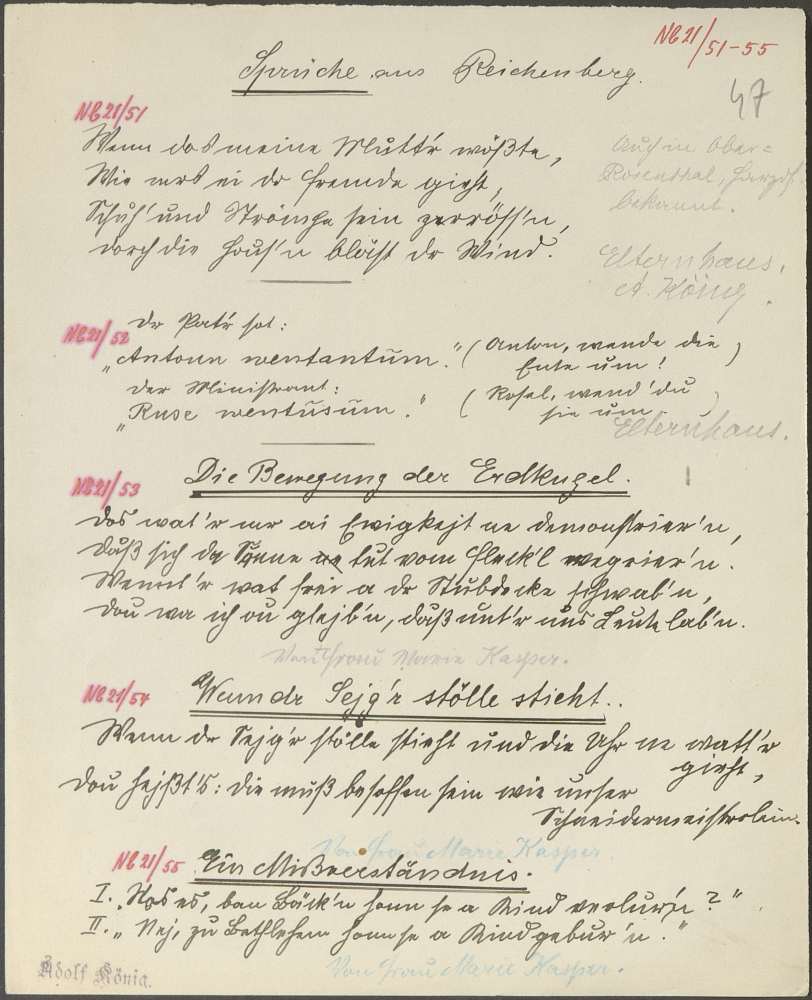 NB 21/51-55
Sprüche aus Reichenberg.
47
NB 21/51
Wenn dos meine Mutt'r wößte,
Wie mrs ei dr Fremde gieht,
Schuh' und Strömpe sein zerröss'n,
dorch die Hous'n bläist dr Wind.
Auch in Ober=
Rosenthal, Harzdf.
bekannt.
Elternhaus,
A. König.
NB 21/52
Dr Pat'r sot:
"Antoun wentantum." (Anton, wende die
Ente um!)
Der Ministrant:
"Ruse wentusum." (Rosel, wend' du
sie um)
Elternhaus.
NB 21/53
Die Bewegung der Erdkugel.
Dos wat'r mr ai Ewigkejt ne demonstrier'n,
Daß sich de Sonne tut vom Fleck'l wegrier'n.
Wennt'r wat frei a dr Stubdecke schwab'n,
Dou wa ich ou glejb'n, daß unt'r uns Leute lab'n.
Von Frau Marie Kasper.
NB 21/54
Wenn dr Sejg'r stölle stieht..
Wenn dr Sejg'r stölle stieht und die Uhr ne watt'r
gieht,
Dou hejßt's: Die muß besoffen sein wie unser
Schneidermeistrlein.
Von Frau Marie Kasper.
NB 21/55
Ein Mißverständnis.
I. "Wos es, ban Bäck'n honn se a Kind verlur'n?"
II. "Nej, zu Bethlehem honn se a Kind gebur'n."
Von Frau Marie Kasper.
Adolf König.